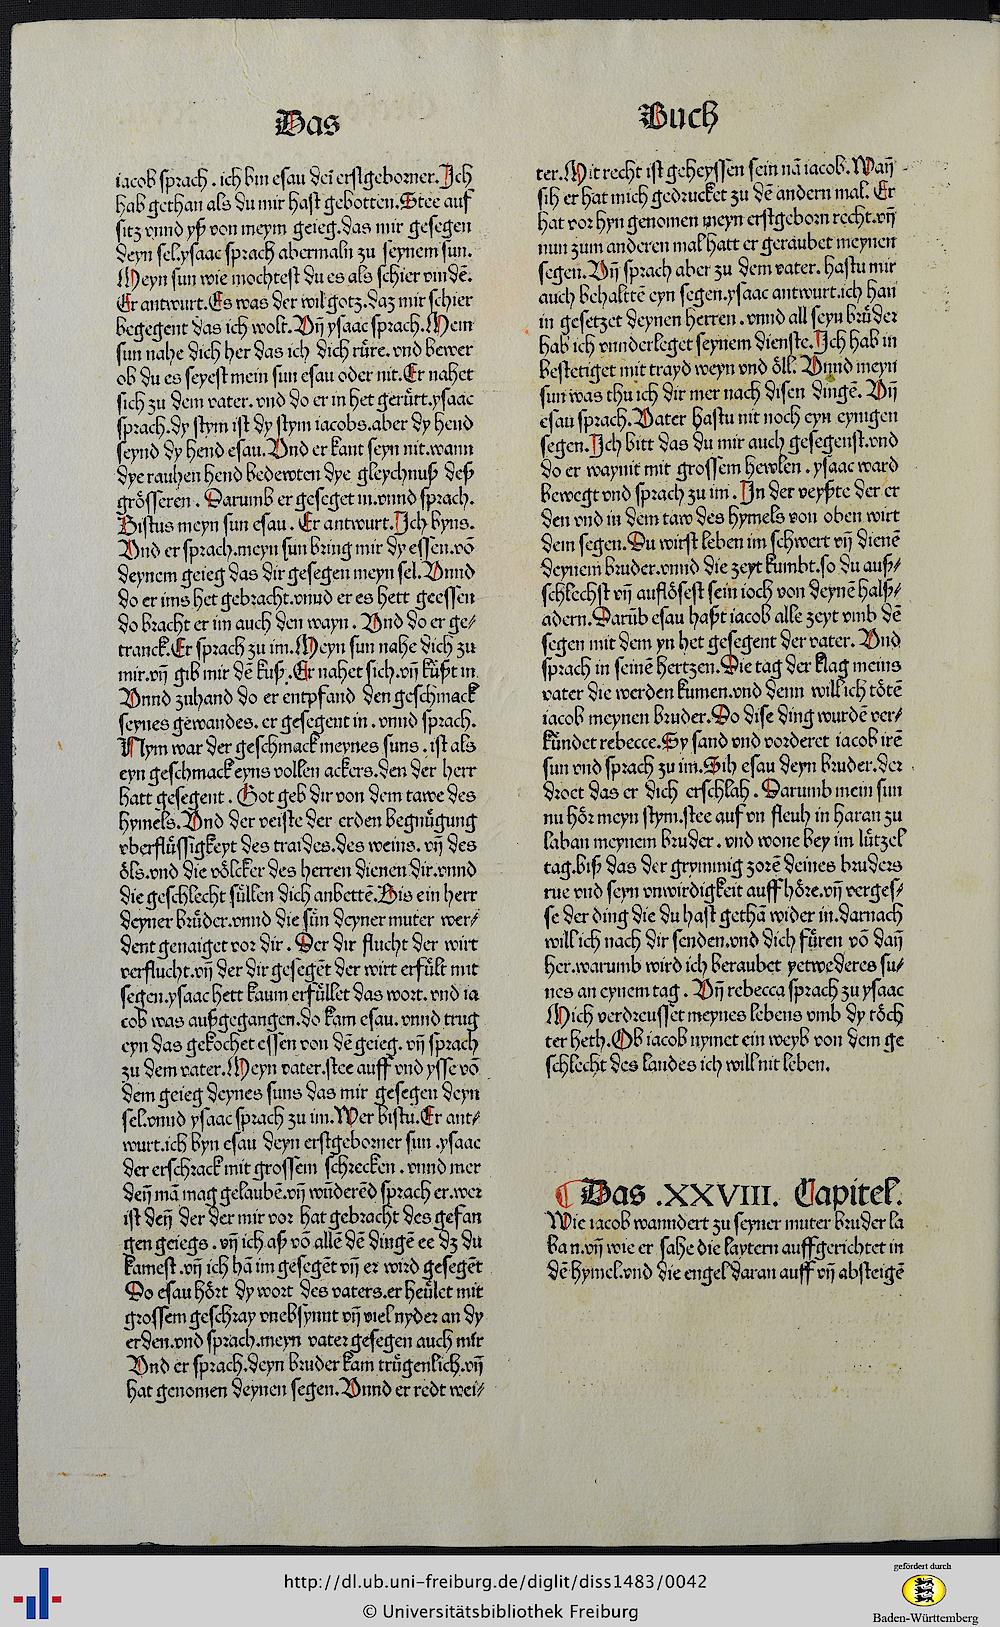 Das
Buch
iacob sprach . ich bin esau dei erstgeborner. Ich
hab gethan als du mir hast gebotten. Stee auf
sitz vnnd yß von meym geieg. das mir gesegen
deyn sel. ysaac sprach abermaln zu seynem sun.
Meyn sun wie mochtest du es als schier vindē.
Er antwurt. Es was der wil gotz. daz mir schier
begegent das ich wolt. Vn̄ ysaac sprach. Mein
sun nahe dich her das ich dich rüre. vnd bewer
ob du es seyest mein sun esau oder nit. Er nahet
sich zu dem vater. vnd do er in het gerürt. ysaac
sprach. dy stym ist dy stym iacobs. aber dy hend
seynd dy hend esau. Vnd er kant seyn nit. wann
dye rauhen hend bedewten dye gleychnuß deß
grösseren . Darumb er geseget in. vnnd sprach.
Bistus meyn sun esau . Er antwurt. Ich byns.
Vnd er sprach. meyn sun bring mir dy essen. vō
deynem geieg das dir gesegen meyn sel. Vnnd
do er ims het gebracht. vnnd er es hett geessen
do bracht er im auch den wayn . Vnd do er ge⸗
tranck. Er sprach zu im. Meyn sun nahe dich zu
mir. vn̄ gib mir dē kuß . Er nahet sich. vn̄ küßt in
Vnnd zuhand do er entpfand den geschmack
seynes gewandes. er gesegent in . vnnd sprach.
Nym war der geschmack meynes suns . ist als
eyn geschmack eyns vollen ackers. den der herr
hatt gesegent . Got geb dir von dem tawe des
hymels. Vnd der veiste der erden begnügung
vberflüssigkeyt des traides. des weins. vn̄ des
öls. vnd die völcker des herren dienen dir. vnnd
die geschlecht süllen dich anbettē. Bis ein herr
deyner brüder. vnnd die sün deyner muter wer⸗
dent genaiget vor dir . Der dir flucht der wirt
verflucht. vn̄ der dir gesegēt der wirt erfült mit
segen. ysaac hett kaum erfüllet das wort. vnd ia
cob was außgegangen. do kam esau. vnnd trug
eyn das gekochet essen von dē geieg. vn̄ sprach
zu dem vater. Meyn vater. stee auff vnd ysse vō
dem geieg deynes suns das mir gesegen deyn
sel. vnnd ysaac sprach zu im. Wer bistu. Er ant⸗
wurt. ich byn esau deyn erstgeborner sun . ysaac
der erschrack mit grossem schrecken . vnnd mer
den̄ mā mag gelaubē. vn̄ wūderēd sprach er. wer
ist den̄ der der mir vor hat gebracht des gefan
gen geiegs . vn̄ ich aß vō allē dē dingē ee dz du
kamest . vn̄ ich hā im gesegēt vn̄ er wird gesegēt
Do esau hört dy wort des vaters. er heület mit
grossem geschray vnebsynnt vn̄ viel nyder an dy
erden. vnd sprach. meyn vater gesegen auch mir
Vnd er sprach. deyn bruder kam trügenlich. vn̄
hat genomen deynen segen. Vnnd er redt wei⸗
ter. Mit recht ist geheyssen sein nā iacob. Wan̄
sih er hat mich gedrucket zu dē andern mal. Er
hat vor hyn genomen meyn erstgeborn recht. vn̄
nun zum anderen mal hatt er geraubet meynen
segen. Vn̄ sprach aber zu dem vater. hastu mir
auch behalttē eyn segen. ysaac antwurt. ich han
in gesetzet deynen herren . vnnd all seyn brüder
hab ich vnnderleget seynem dienste. Ich hab in
bestetiget mit trayd weyn vnd öll. Vnnd meyn
sun was thu ich dir mer nach disen dingē. Vn̄
esau sprach. Vater hastu nit noch eyn eynigen
segen. Ich bitt das du mir auch gesegenst. vnd
do er waynit mit grossem hewlen . ysaac ward
bewegt vnd sprach zu im . In der veyßte der er
den vnd in dem taw des hymels von oben wirt
dein segen. Du wirst leben im schwert vn̄ dienē
deynem bruder. vnnd die zeyt kumbt. so du auß⸗
schlechst vn̄ auflösest sein ioch von deynē halß⸗
adern. Darūb esau haßt iacob alle zeyt vmb dē
segen mit dem yn het gesegent der vater. Vnd
sprach in seinē hertzen. Die tag der klag meins
vater die werden kumen. vnd denn will ich tötē
iacob meynen bruder. Do dise ding wurdē ver⸗
kündet rebecce. Sy sand vnd vorderet iacob irē
sun vnd sprach zu im. Sih esau deyn bruder. der
droet das er dich erschlah . Darumb mein sun
nu hör meyn stym. stee auf vn fleuh in haran zu
laban meynem bruder . vnd wone bey im lützel
tag. biß das der grymmig zorē deines bruders
rue vnd seyn vnwirdigkeit auff höre. vn̄ verges⸗
se der ding die du hast gethā wider in. darnach
will ich nach dir senden. vnd dich füren vō dan̄
her. warumb wird ich beraubet yetwederes su⸗
nes an eynem tag . Vn̄ rebecca sprach zu ysaac
Mich verdreusset meynes lebens vmb dy töch
ter heth. Ob iacob nymet ein weyb von dem ge
schlecht des landes ich will nit leben.
Das .XXVIII. Capitel.
Wie iacob wanndert zu seyner muter bruder la
ban. vn̄ wie er sahe die laytern auffgerichtet in
dē hymel. vnd die engel daran auff vn̄ absteigē
http://dl.ub.uni-freiburg.de/diglit/diss1483/0042
© Universitätsbibliothek Freiburg
gefördert durch
Baden-Württemberg